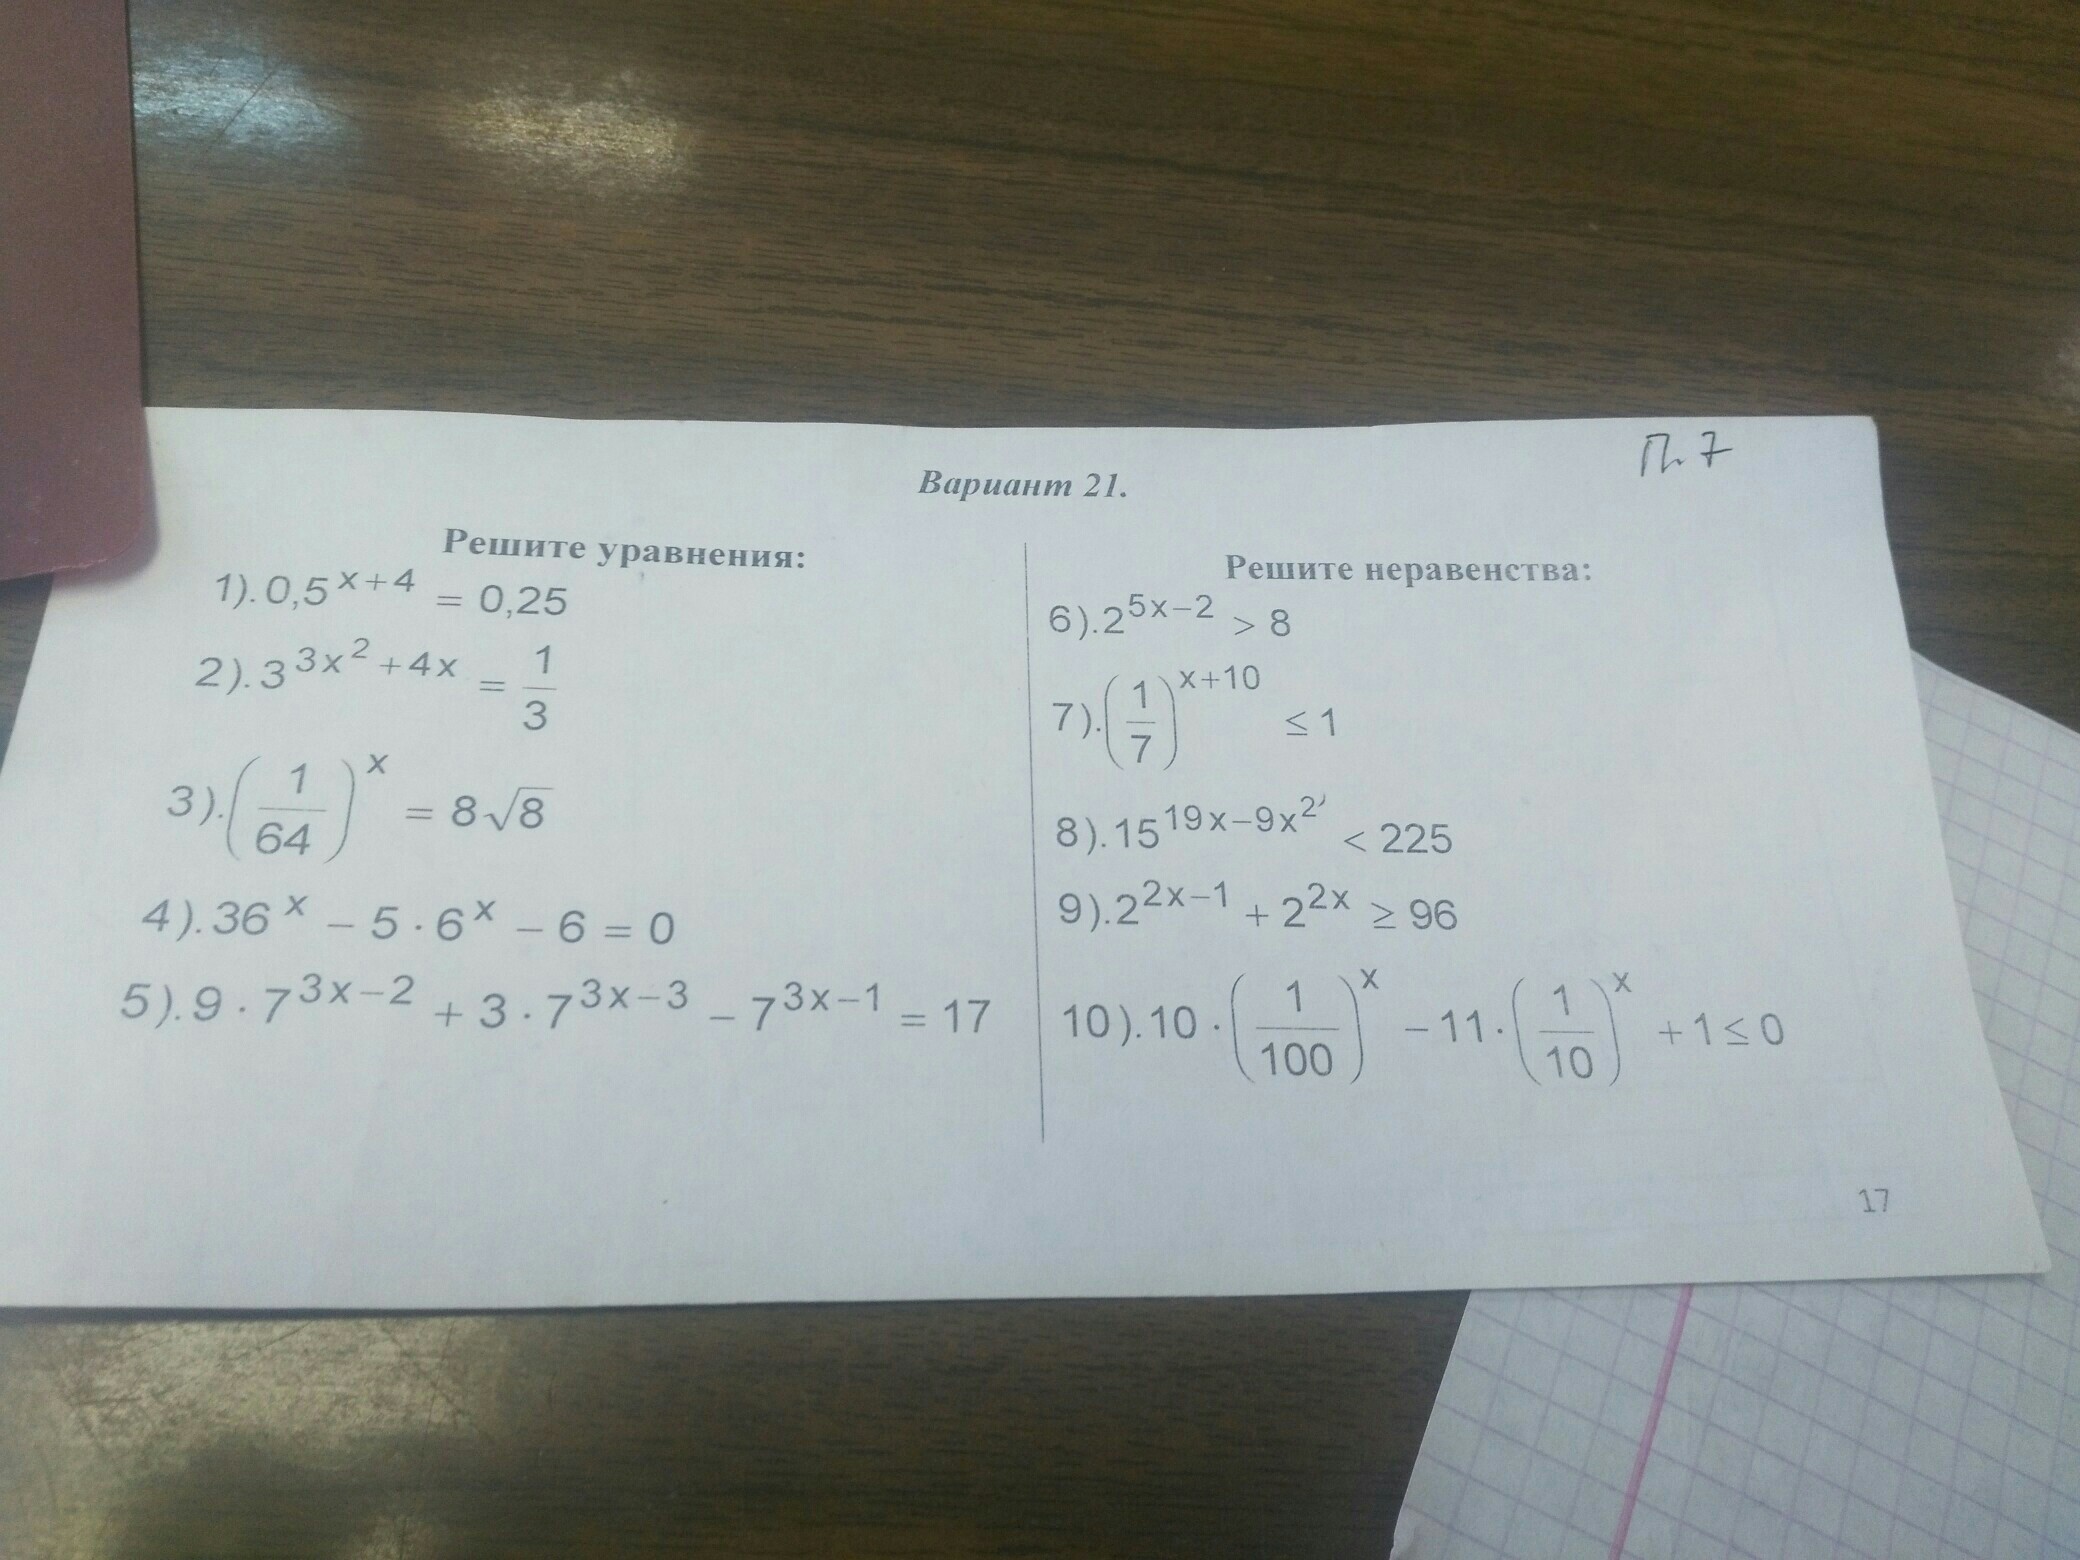 П. 7
Вариант 21.
Решите уравнения:
1). 0,5^(x+4) = 0,25
2). 3^(3x²+4x) = 1/3
3). (1/64)^x = 8√8
4). 36^x − 5 · 6^x − 6 = 0
5). 9 · 7^(3x−2) + 3 · 7^(3x−3) − 7^(3x−1) = 17
Решите неравенства:
6). 2^(5x−2) > 8
7). (1/7)^(x+10) ≤ 1
8). 15^(19x−9x²) < 225
9). 2^(2x−1) + 2^(2x) ≥ 96
10). 10 · (1/100)^x − 11 · (1/10)^x + 1 ≤ 0
17